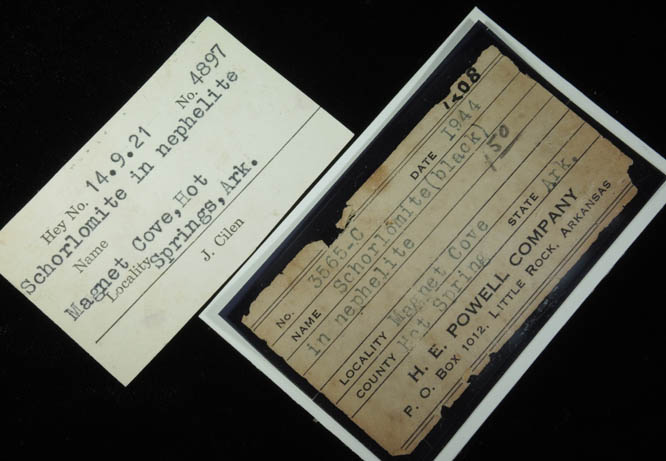 Hey No. 14.9.21 No. 4897
Schorlomite in nephelite
Name
Magnet Cove, Hot
Locality Springs, Ark.
J. Cilen
No. 3565-C DATE 1944
NAME Schorlomite(black)
in nephelite 1.50
LOCALITY Magnet Cove
COUNTY Hot Spring STATE Ark.
H. E. POWELL COMPANY
P. O. BOX 1012, LITTLE ROCK, ARKANSAS